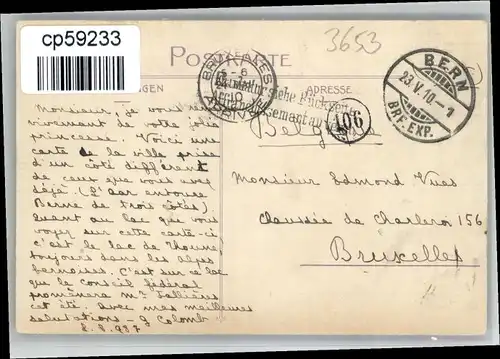 cp59233
3653
POSTKARTE
ADRESSE
BRUXELLES
ARRIVÉE
BERN
23.V.10
BRF. EXP.
106
Belgique
Monsieur, je vous
vivement de votre jolie
princesse. Voici une
carte de la ville prise
d'un côté différent
de ceux que vous avez
déjà. (L'aar entoure
Berne de trois côtés)
quant au lac que vous
voyez sur cette carte-ci
c'est le lac de Thoune,
toujours dans les alpes
bernoises. C'est sur ce lac
que le conseil fédéral
promènera Mr Fallières
cet été. Avec mes meilleures
salutations - G Colomb
Monsieur Edmond
Chaussée de Charleroi 156
Bruxelles